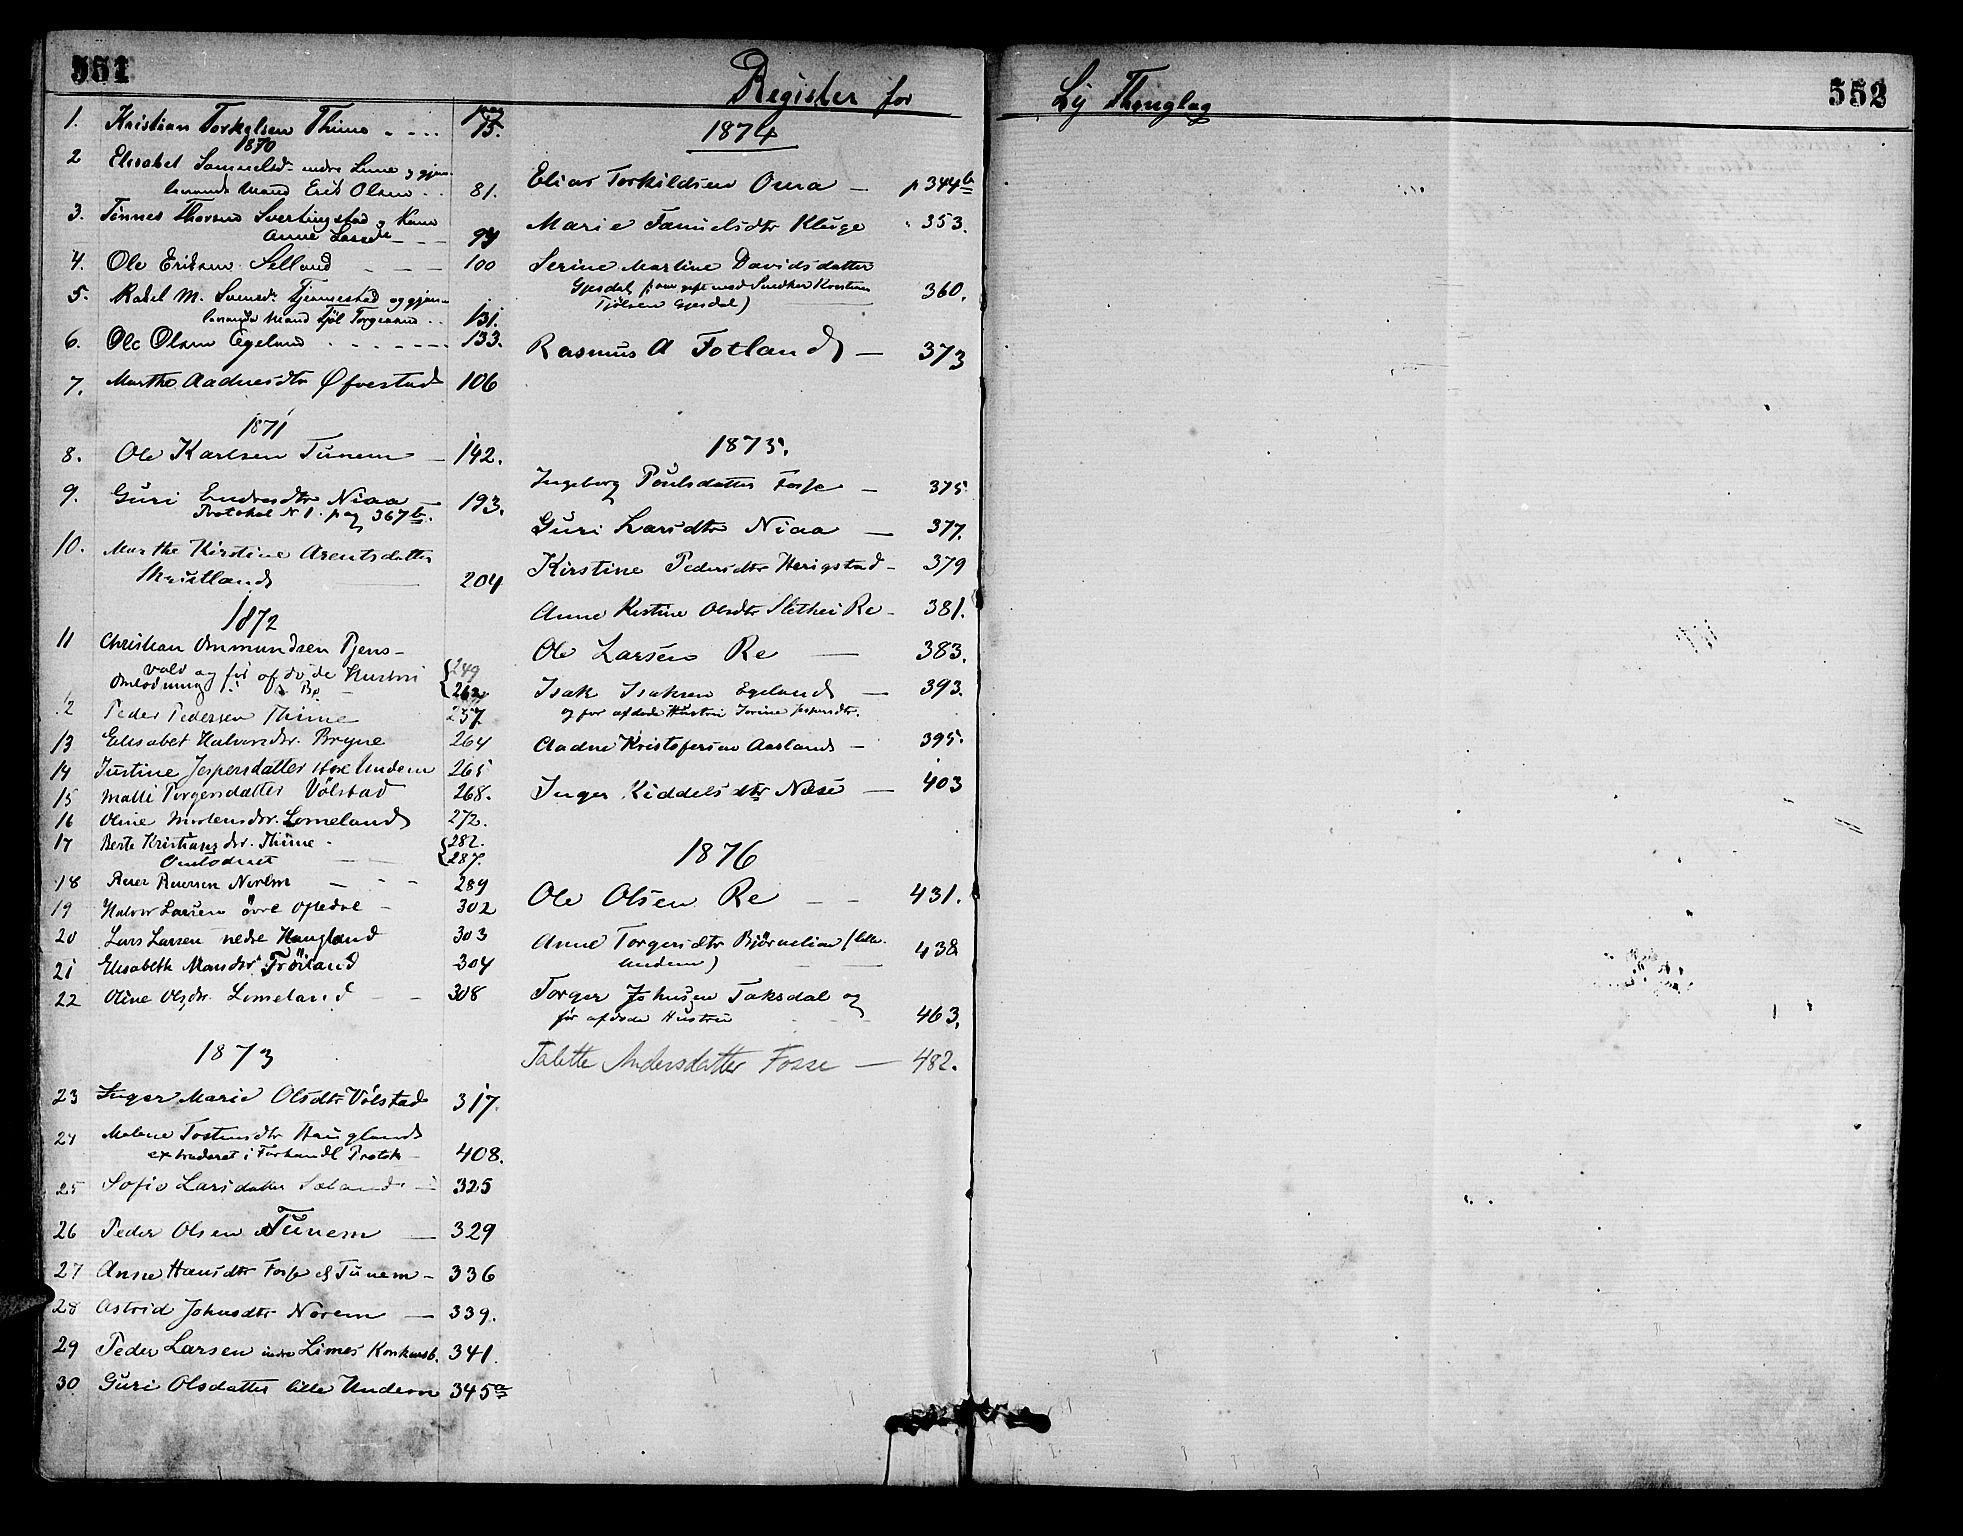 551
Register for Lÿ Thinglag
552
pag
1. Kristian Torkelsen Thime 15.
1870
2 Elisabet Samuelsd. indre Lime og gjen-
levende Mand Erik Olsen 81.
3. Tönnes Thorsen Svertingstad og Kone
Anne Larsdtr 99
4. Ole Eriksen Selland 100
5. Rakel M. Svendsdr Tjemestad og gjen-
levende Mand Tjöl Torgersen 131.
6. Ole Olsen Egeland 133.
7. Marthe Aadnesdtr Øfrestad 106
1871
8. Ole Karlsen Tunem 142.
9. Guri Endresdtr Niaa 193.
Protokol N 1. pag 367 b.
10. Marthe Kirstine Arentsdatter
204
1872
11 Christian Ommundsen Tjens-
vold og før afdøde Hustru 249
Omlodning 262
12 Peder Pedersen Thime 257
13 Elisabet Halvorsdr. Bryne 264
14 Justine Jespersdatter store Undem 265
15 Malli Torgersdatter Völstad 268.
16 Oline Mortensdr. Lomeland 272.
17 Berte Kristiansdr. Thime 282.
Omlodnet 287.
18 Reier Reiersen Norem 289
19 Halvor Larsen övre Opedal 302
20 Lars Larsen nedre Haugland 303
21 Elisabeth Monsdr. Fröiland 304
22 Oline Olsdr. Lomeland 308
1873
23 Inger Marie Olsdtr Völstad 317.
24 Malene Tostensdtr Haugland
extraderet i Forhandl Protok 408.
25 Sofie Larsdatter Sæland 325
26 Peder Olsen Tunem 329
27 Anne Hansdtr Fosse & Tunem 336
28 Astrid Johnsdtr Norem 339.
29 Peder Larsen indre Limes Konkursb. 341.
30 Guri Olsdatter lille Undem 345 a
1874
Elias Torkildsen Oma p 344 b
Marie Samuelsdtr Kluge " 353.
Serine Martine Davidsdatter
Gjesdal (som gift med Snedker Kristian
Tjölsen Gjesdal) 360.
Rasmus A Fotland 373
1875.
Ingeborg Poulsdatter Fosse 375
Guri Larsdtr Niaa 377.
Kirstine Pedersdtr Herigstad 379
Anne Kistine Olsdtr Slethei Re 381.
Ole Larsen Re 383.
Isak Isaksen Egeland 393.
og for afdøde Hustru Serine Jespersdtr.
Aadne Kristofersen Aasland 395.
Inger Kiddelsdtr Næse 403
1876
Ole Olsen Re 431.
Anne Torgersdtr Björnelien (lille
Undem) 438
Torger Johnsen Taksdal og
før afdøde Hustru 463.
Talette Andersdatter Fosse 482.